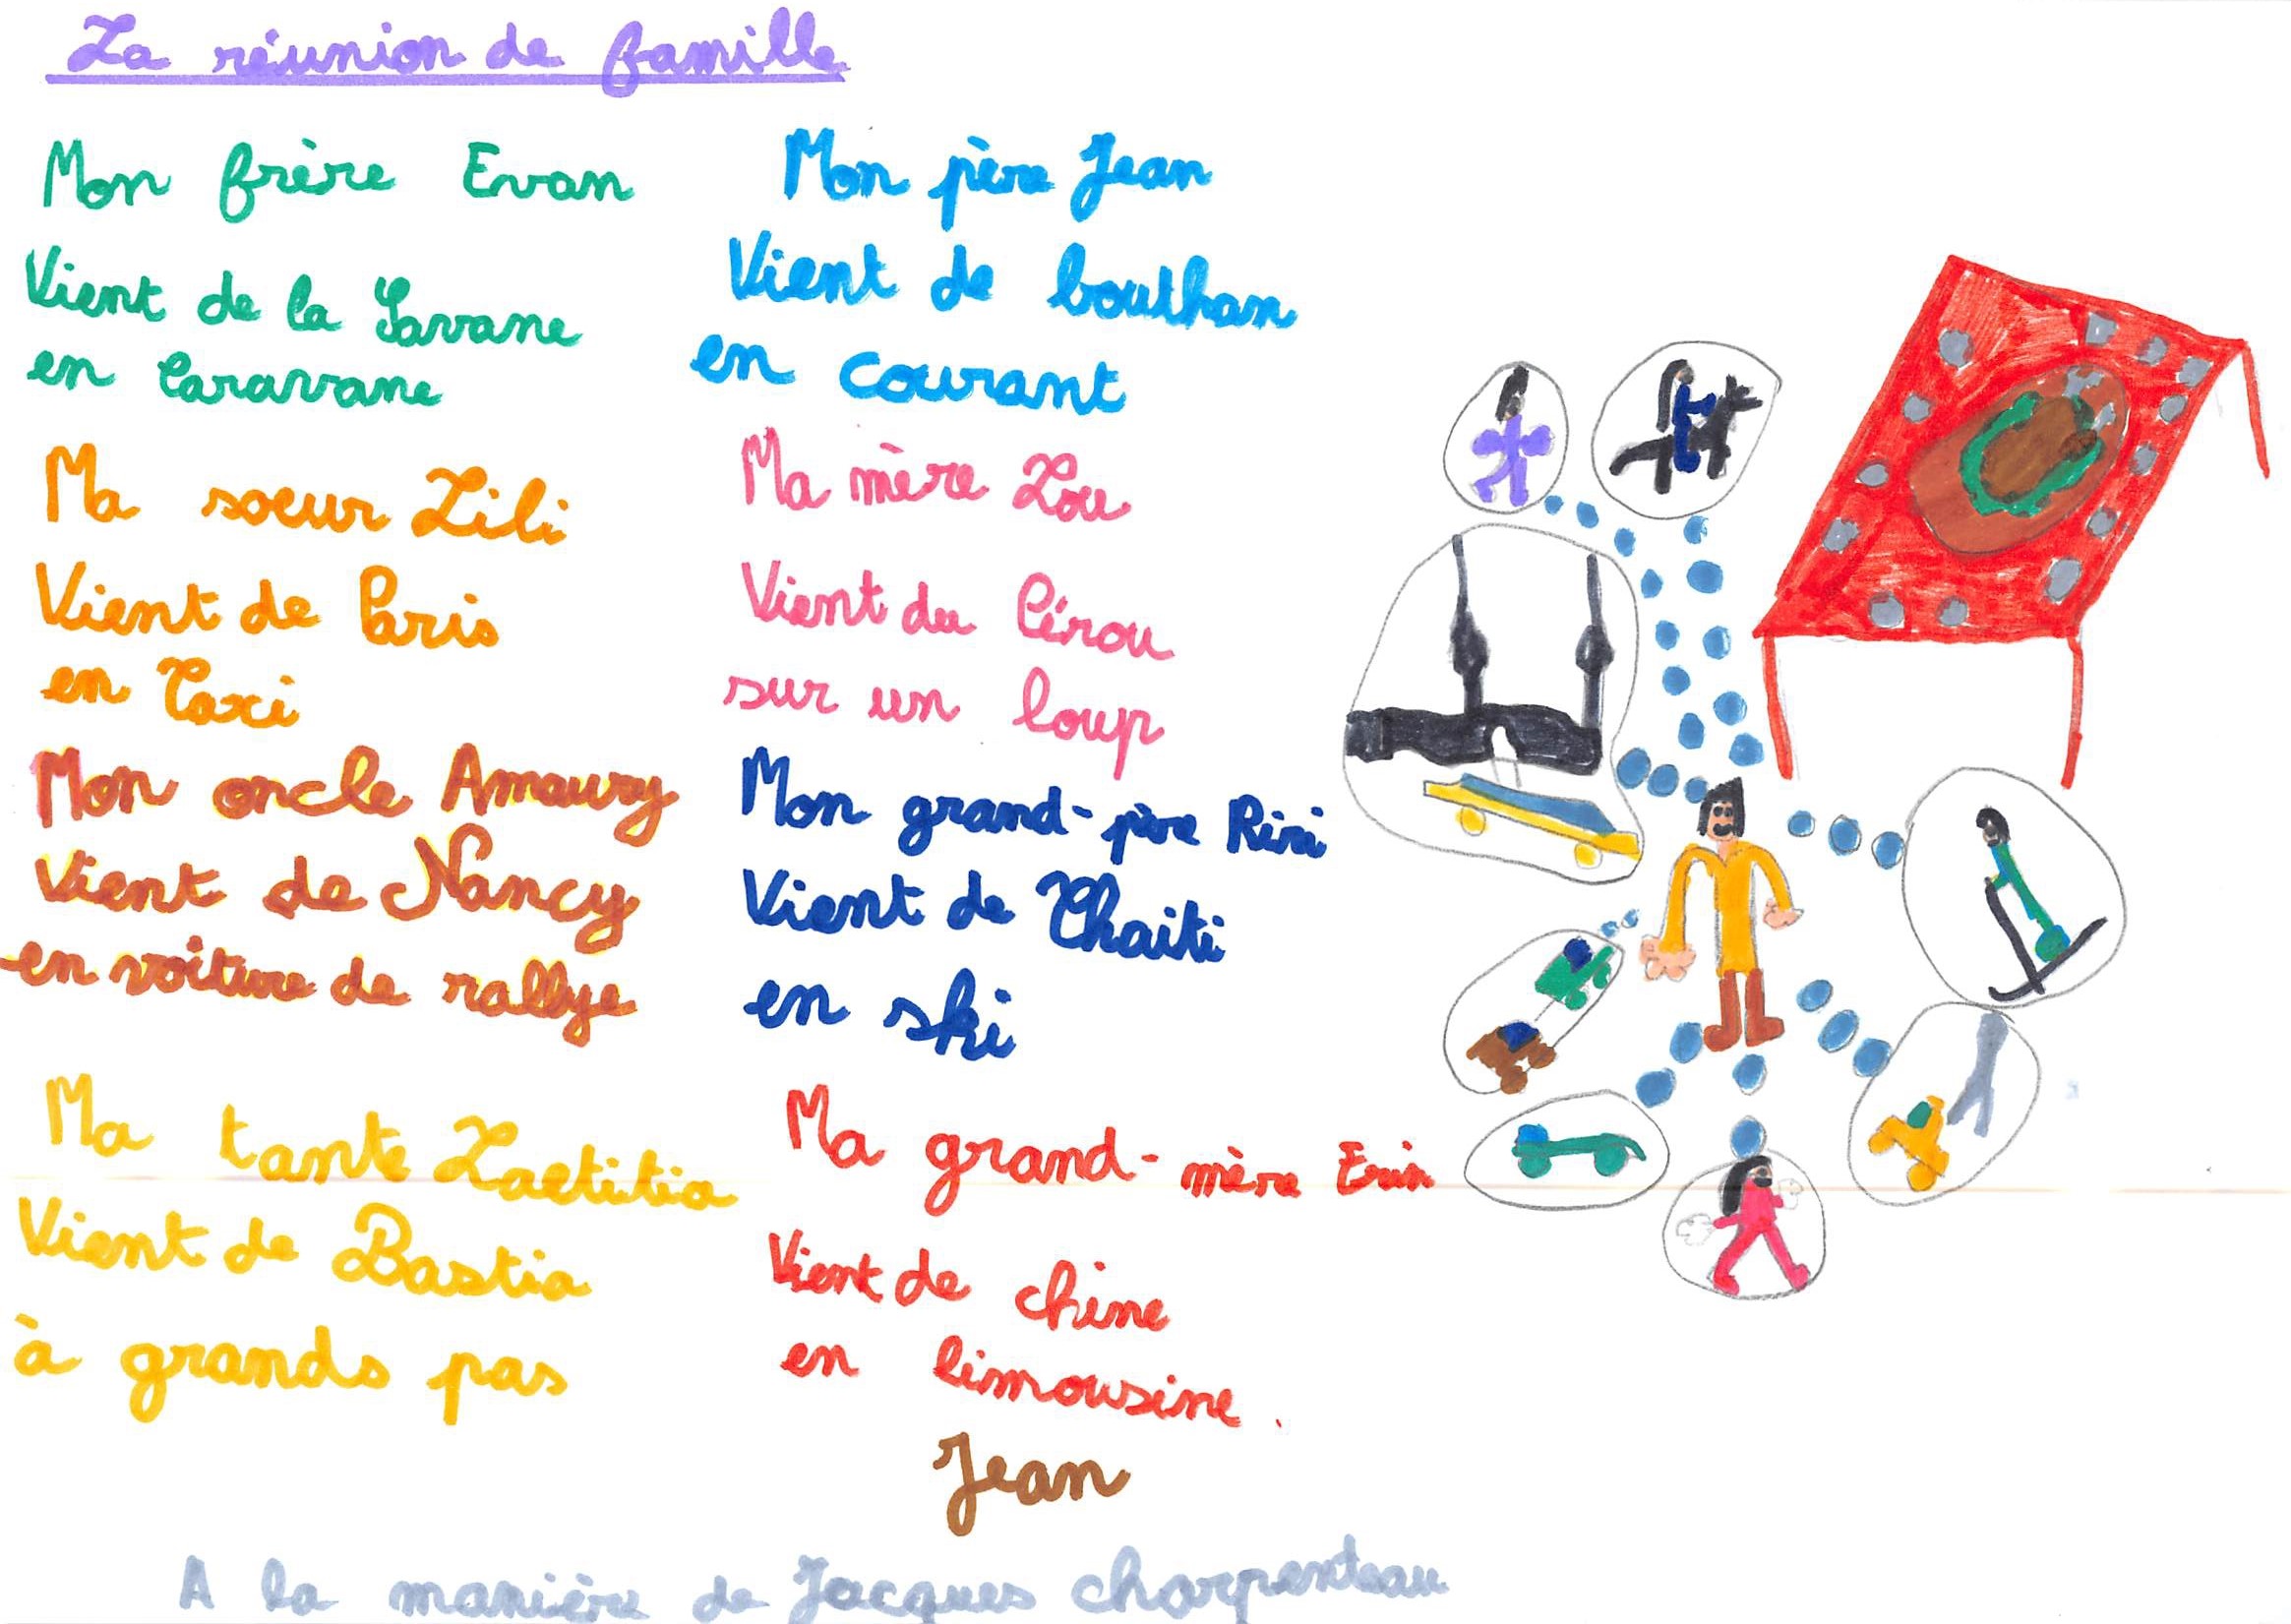 La réunion de famille
Mon frère Evan
Vient de la Savane
en Caravane
Ma soeur Lili
Vient de Paris
en Taxi
Mon oncle Amaury
Vient de Nancy
en voiture de rallye
Ma tante Laetitia
Vient de Bastia
à grands pas
Mon père Jean
Vient de bouthan
en courant
Ma mère Lou
Vient du Pérou
sur un loup
Mon grand-père Riri
Vient de Thaiti
en ski
Ma grand-mère Erin
Vient de chine
en limousine.
Jean
A la manière de Jacques charpenteau